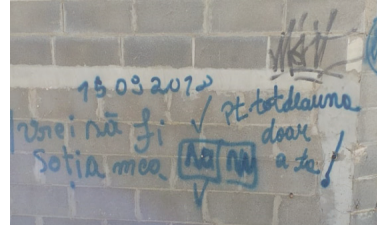 09
Vrei să fi
Soția mea Da Nu
pt totdeauna
doar
a ta!